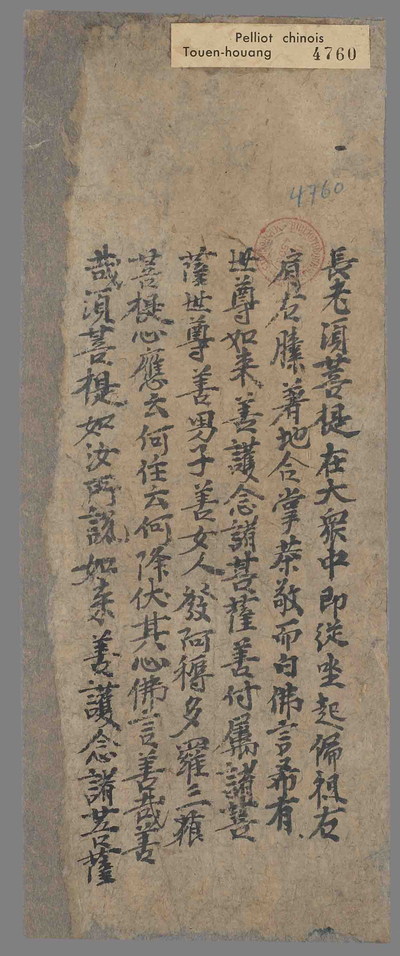 Pelliot chinois
Touen-houang 4760
4760
長老須菩提在大衆中即從坐起偏袒右
肩右膝著地合掌恭敬而白佛言希有
世尊如来善護念諸菩薩善付属諸菩
薩世尊善男子善女人發阿耨多羅三藐
菩提心應云何住云何降伏其心佛言善哉善
哉須菩提如汝所説如来善護念諸菩薩